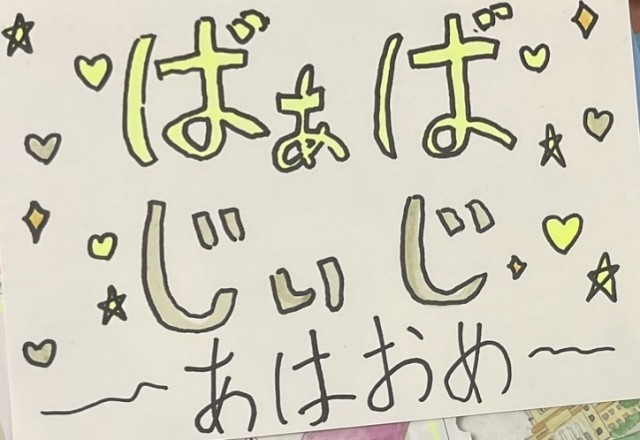 ばぁば
じぃじ
〜あはおめ〜